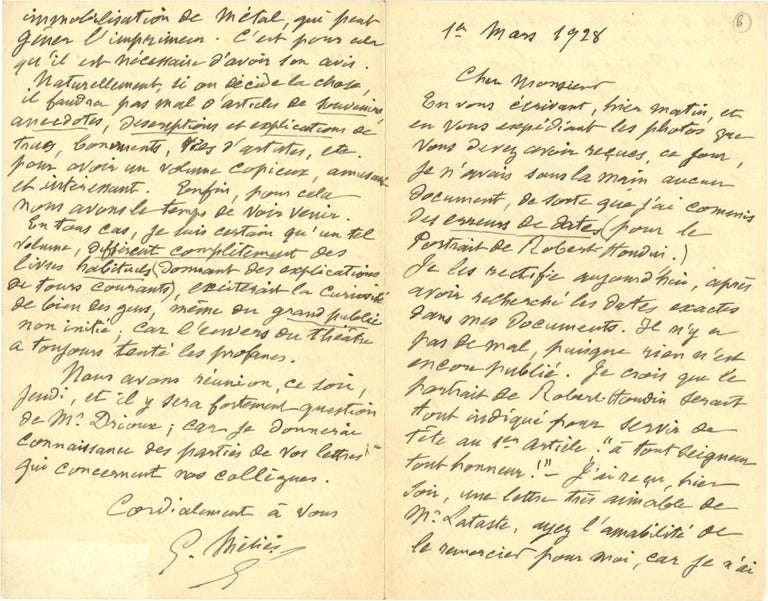 immobilisation de métal, qui peut
gêner l'imprimeur. C'est pour cela
qu'il est nécessaire d'avoir son avis.
Naturellement, si on décide la chose,
il faudra pas mal d'articles de souvenirs,
anecdotes, descriptions et explications de
trucs, boniments, vies d'artistes, etc.
pour avoir un volume copieux, amusant
et intéressant. Enfin, pour cela
nous avons le temps de voir venir.
En tous cas, je suis certain qu'un tel
volume, différent complètement des
livres habituels (donnant des explications
de tours courants), exciterait la curiosité
de bien des gens, même du grand public
non initié; car l'envers du théâtre
a toujours tenté les profanes.
Nous avons réunion, ce soir,
jeudi, et il y sera fortement question
de Mr. Drioux; car je donnerai
connaissance des parties de vos lettres
qui concernent nos collègues.
Cordialement à vous
G. Méliès
6
1er Mars 1928
Cher Monsieur
En vous écrivant, hier matin, et
en vous expédiant les photos que
vous devez avoir reçues, ce jour,
je n'avais sous la main aucun
document, de sorte que j'ai commis
des erreurs de dates (pour le
Portrait de Robert-Houdin.)
Je les rectifie aujourd'hui, après
avoir recherché les dates exactes
dans mes documents. Il n'y a
pas de mal, puisque rien n'est
encore publié. Je crois que le
portrait de Robert-Houdin serait
tout indiqué pour servir de
tête au 1er article; "à tout seigneur
tout honneur!" - J'ai reçu, hier
soir, une lettre très aimable de
Mr. Lataste, ayez l'amabilité de
le remercier pour moi, car je n'ai